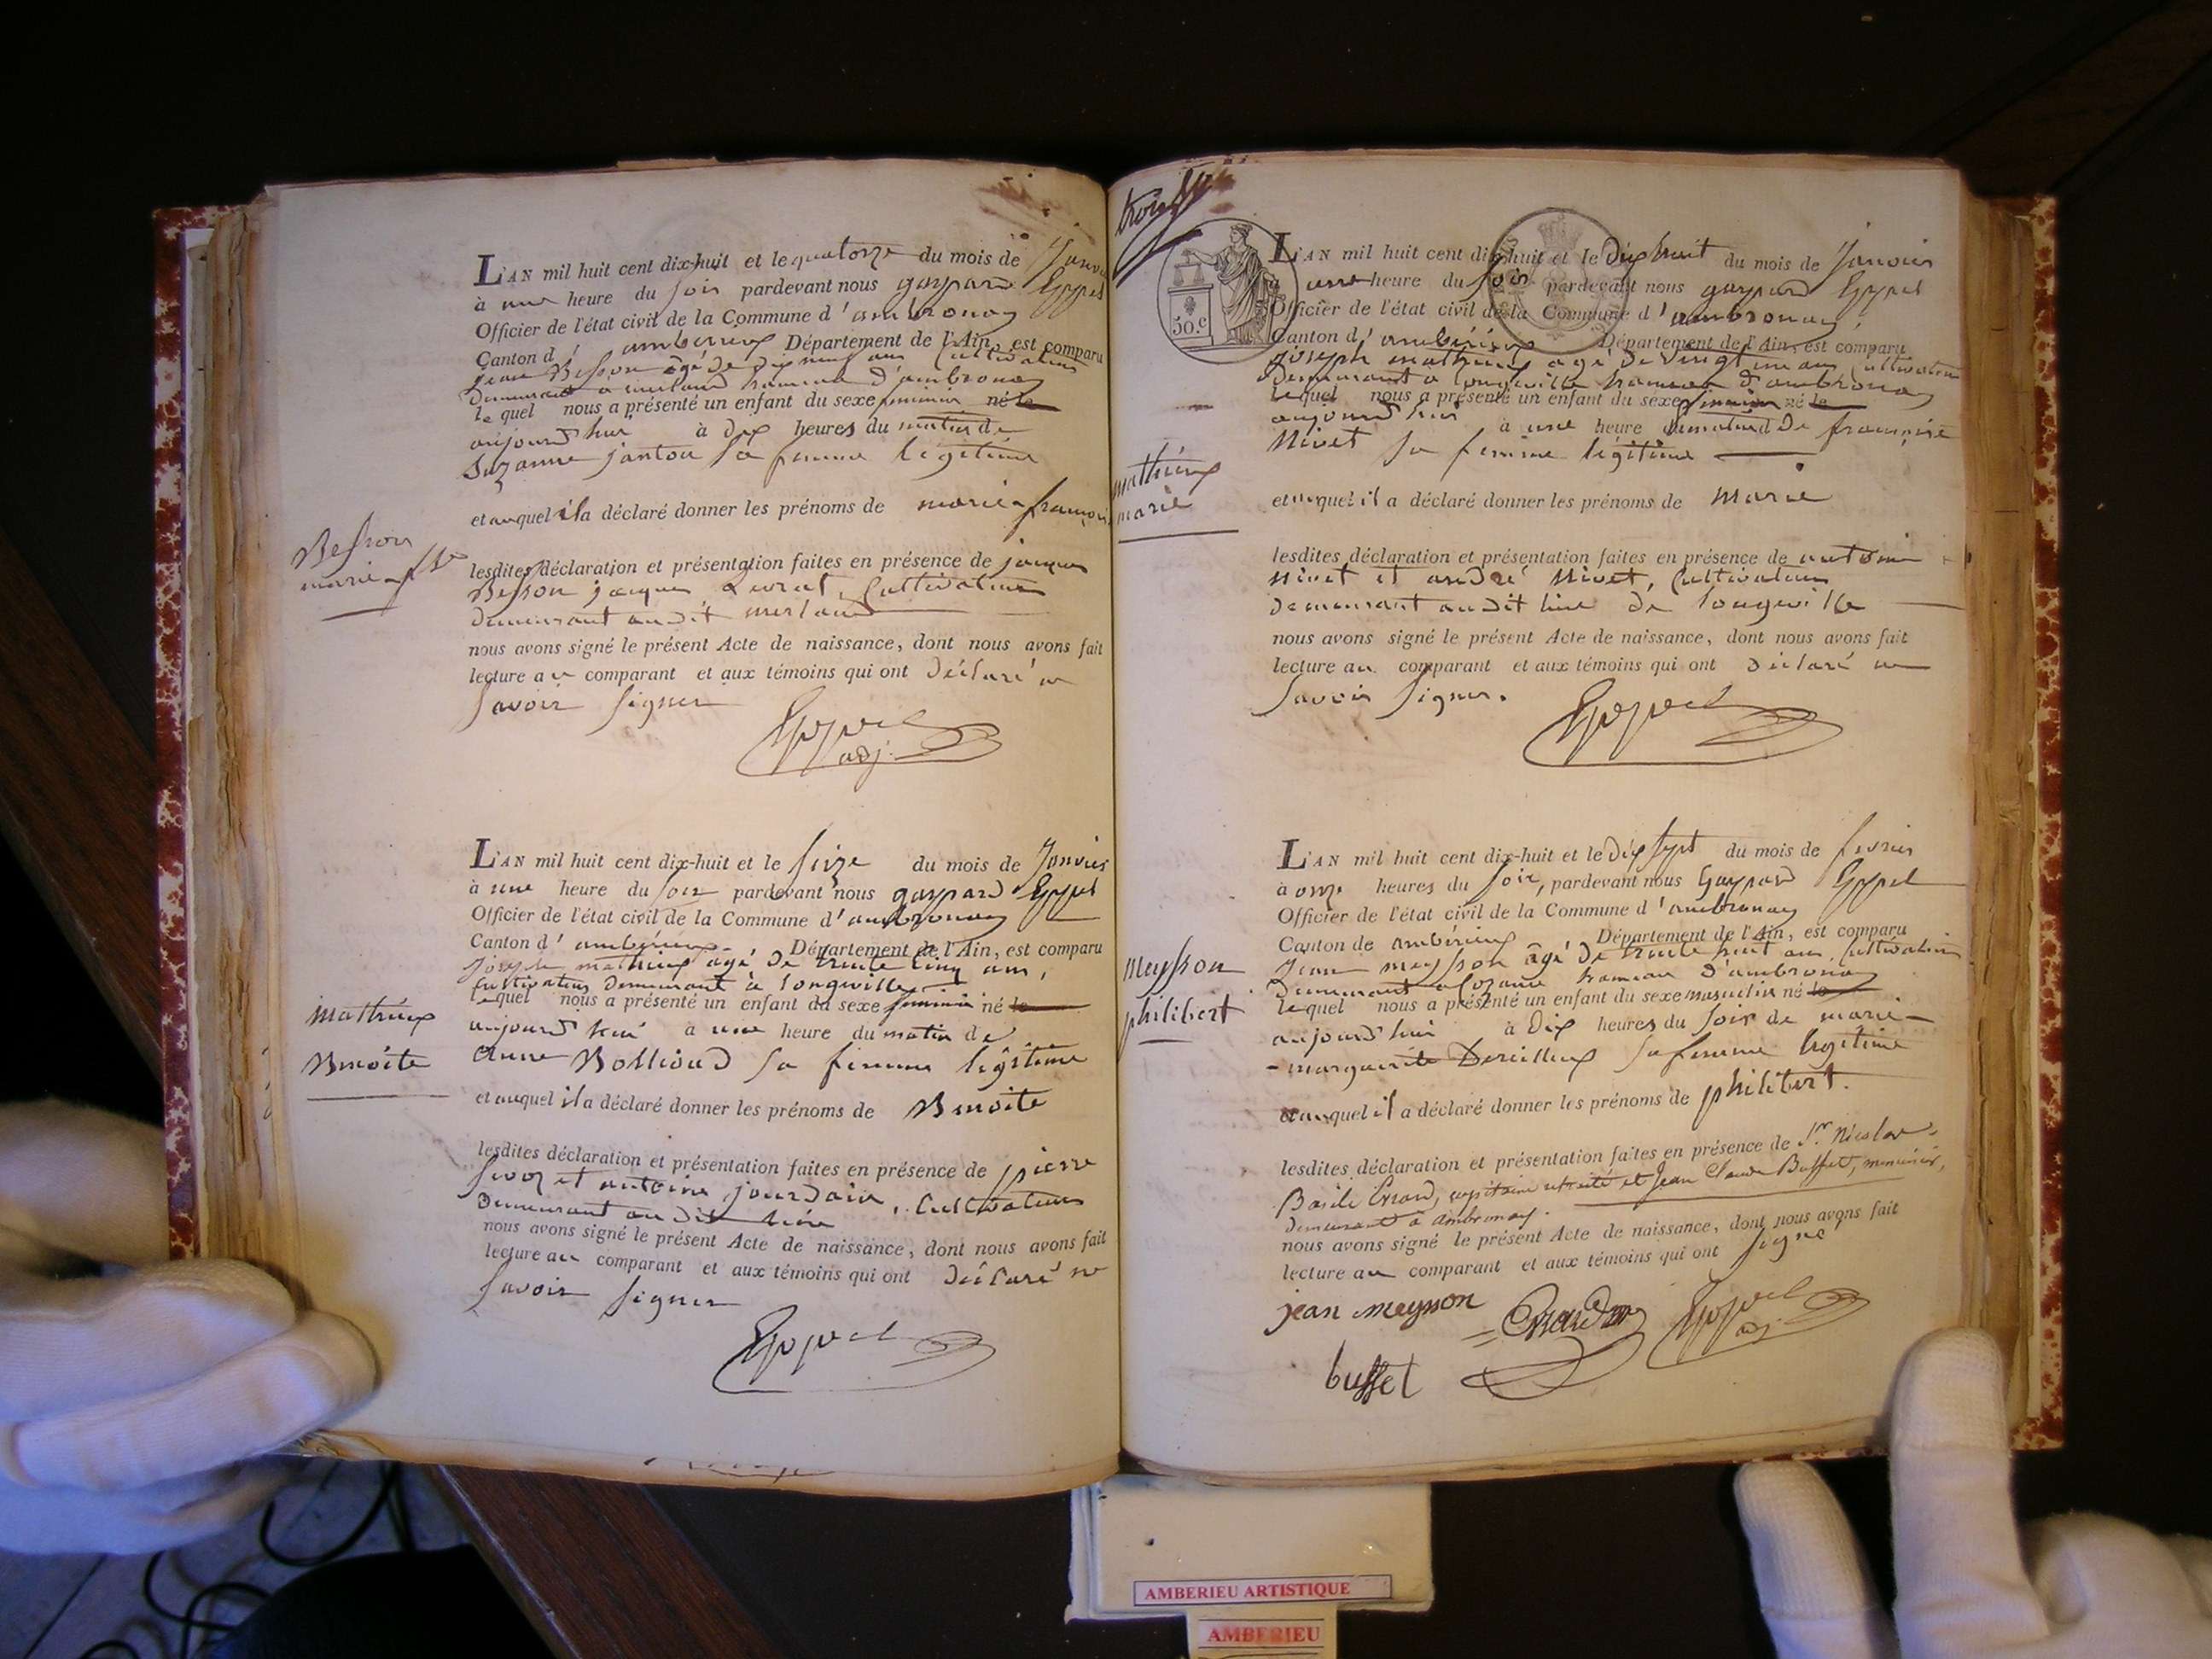 L'AN mil huit cent dix-huit et le quatorze du mois de Janvier
à une heure du soir pardevant nous gaspard Eppel
Officier de l'état civil de la Commune d'ambronay
Canton d'ambérieux Département de l'Ain, est comparu
jean Besson âgé de dix neuf ans Cultivateur
Demeurant a merland hameau d'ambronay
lequel nous a présenté un enfant du sexe feminin né le
aujourd'hui à dix heures du matin de
Suzanne jantou sa femme légitime
et auquel il a déclaré donner les prénoms de marie-françoise
Besson
marie-fse
lesdites déclaration et présentation faites en présence de jacques
Besson jacques Levrat, Cultivateurs
demeurant au dit merland
nous avons signé le présent Acte de naissance, dont nous avons fait
lecture au comparant et aux témoins qui ont déclaré ne
savoir signer
Eppel
adj.
L'AN mil huit cent dix-huit et le seize du mois de Janvier
à une heure du soir pardevant nous gaspard Eppel
Officier de l'état civil de la Commune d'ambronay
Canton d'ambérieux Département de l'Ain, est comparu
Joseph mathieux âgé de trente cinq ans,
Cultivateur demeurant à longeville
lequel nous a présenté un enfant du sexe feminin né le
aujourd'hui à une heure du matin de
Anne Bollioud sa femme légitime
mathieux
Benoite
et auquel il a déclaré donner les prénoms de Benoite
lesdites déclaration et présentation faites en présence de pierre
et antoine jourdain, Cultivateurs
Demeurant au dit lieu
nous avons signé le présent Acte de naissance, dont nous avons fait
lecture au comparant et aux témoins qui ont déclaré ne
savoir signer
Eppel
trois
50.c
L'AN mil huit cent dix-huit et le dix huit du mois de Janvier
à une heure du soir pardevant nous gaspard Eppel
Officier de l'état civil de la Commune d'ambronay,
Canton d'ambérieux Département de l'Ain, est comparu
Joseph mathieux âgé de vingt un ans Cultivateur
Demeurant a longeville hameau d'ambronay
lequel nous a présenté un enfant du sexe feminin né le
aujourd'hui à une heure du matin de françoise
Nivet sa femme légitime
mathieux
marie
et auquel il a déclaré donner les prénoms de Marie
lesdites déclaration et présentation faites en présence de antoine
nivet et andré Nivet, Cultivateurs
demeurant au dit lieu de longeville
nous avons signé le présent Acte de naissance, dont nous avons fait
lecture au comparant et aux témoins qui ont déclaré ne
savoir signer.
Eppel
L'AN mil huit cent dix-huit et le dix sept du mois de fevrier
à onze heures du soir, pardevant nous Gaspard Eppel
Officier de l'état civil de la Commune d'ambronay
Canton de ambérieux Département de l'Ain, est comparu
Jean meysson âgé de trente huit ans, Cultivateur
Demeurant a Cozance hameau d'ambronay
lequel nous a présenté un enfant du sexe masculin né le
aujourd'hui à dix heures du soir de marie-
-marguerite Dereilleux sa femme légitime
meysson
philibert
et auquel il a déclaré donner les prénoms de philibert.
lesdites déclaration et présentation faites en présence de Sr. Nicolas
Basile Erard, capitaine retraité et Jean Claude Buffet, menuisier,
demeurant à ambronay.
nous avons signé le présent Acte de naissance, dont nous avons fait
lecture au comparant et aux témoins qui ont signé
jean meysson
Erard
Eppel
adj.
buffet
AMBERIEU ARTISTIQUE
AMBERIEU